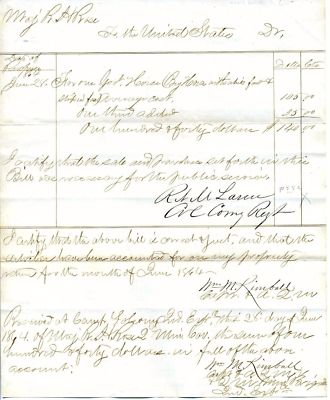 Maj R. H. Rose
To the United States Dr.
Date of
Purchase
1864
Dolls Cts
June 26 For one Govt Horse Bay
and cost. 105 00
One third added 35 00
One hundred & forty dollars $ 140 00
I certify that the sale and purchase set forth in this
Bill is necessary for the public service
R. N. McLaren
Col Comg Regt
I certify that the above bill is correct & just, and that the
articles have been accounted for on my property
return for the month of June 1864
Wm M. Kimball
Capt & A. Q. M
Received at Camp this 26 day of June
1864, of Maj R. H. Rose 2 Minn Cav. the sum of one
hundred & forty dollars, in full of the above
account:
Wm M. Kimball
Capt & A. Q. M